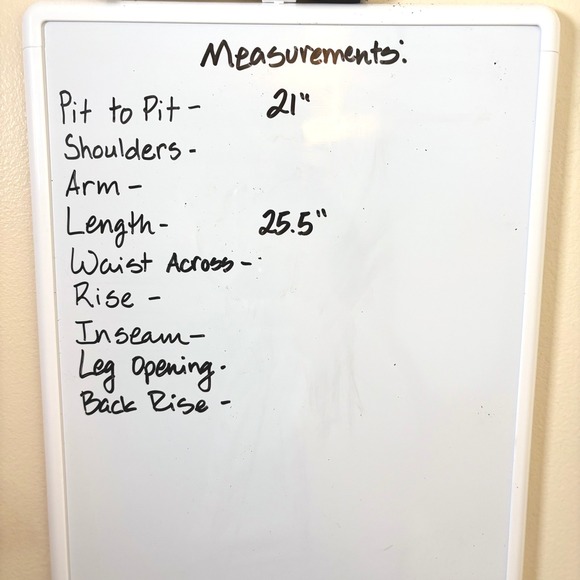 Measurements:
Pit to Pit - 21"
Shoulders -
Arm -
Length - 25.5"
Waist Across -
Rise -
Inseam -
Leg Opening -
Back Rise -